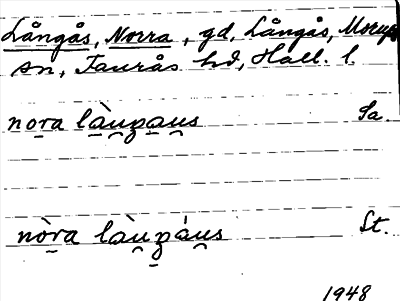 Långås, Norra, gd, Långås, Morups
sn, Faurås hd, Hall. l.
nora làu̯ŋau̯s Sa.
nòra làu̯ŋáu̯s St.
1948